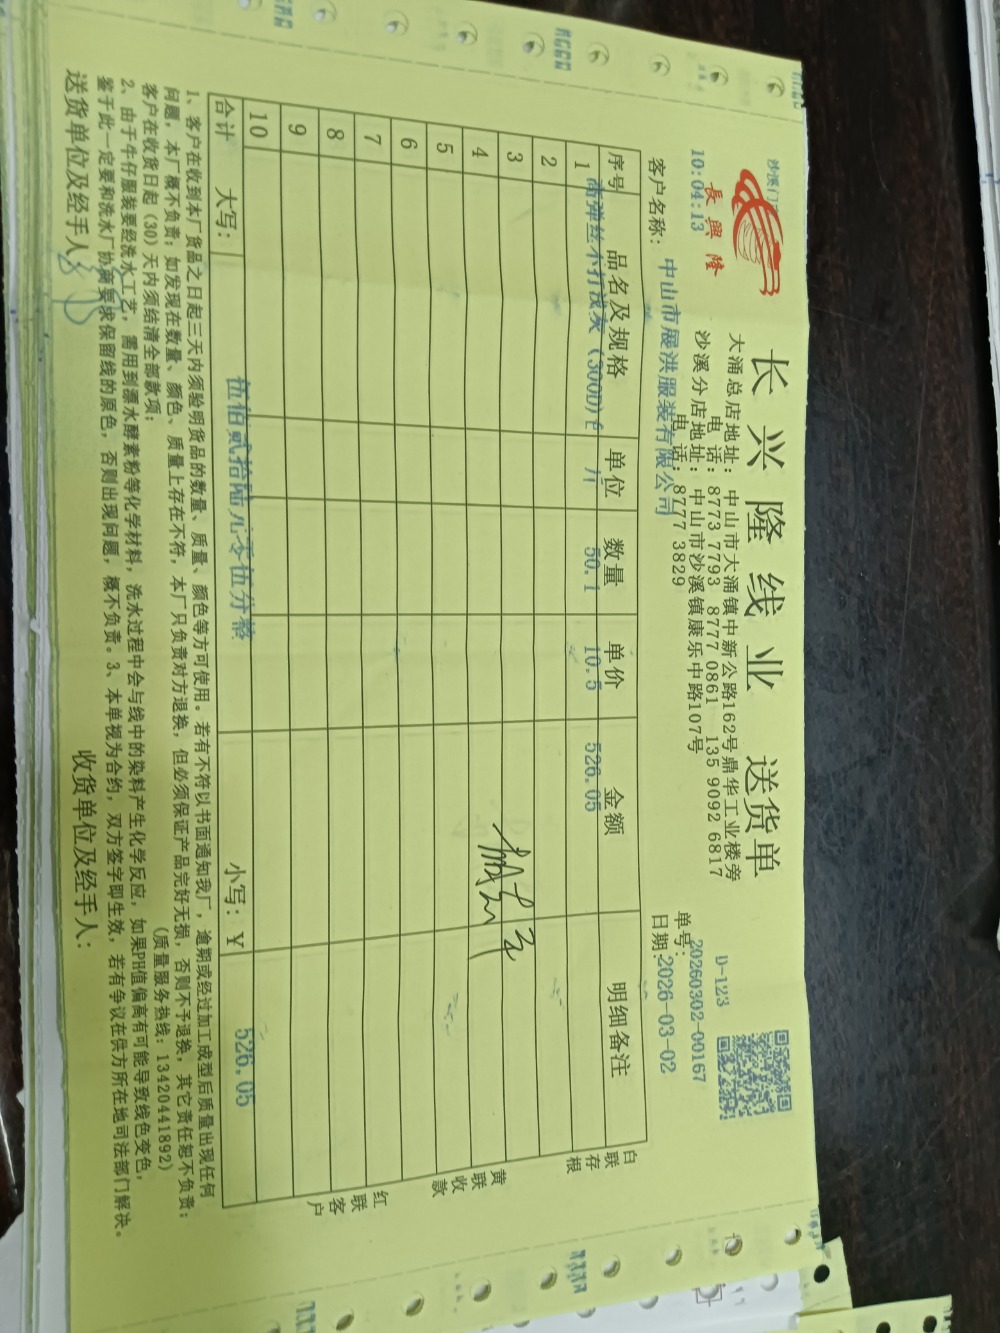 长兴隆线业 送货单
長興隆
10:04:13
大涌总店地址：中山市大涌镇中新公路162号鼎华工业楼旁
电 话：8773 7793 8777 0861 135 9092 6817
沙溪分店地址：中山市沙溪镇康乐中路107号
电 话：8777 3829
D-123
单号：20260302-00167
客户名称：中山市展洪服装有限公司
日期：2026-03-02
序号 品名及规格 单位 数量 单价 金额 明细备注
1 高弹丝不打浅灰（300D) 斤 50.1 10.5 526.05
2
3
4
5
6
7
8
9
10
合计 大写：伍佰贰拾陆元零伍分整 小写：￥ 526.05
白联存根
黄联收款
红联客户
1、客户在收到本厂货品之日起三天内须验明货品的数量、质量、颜色等方可使用。若有不符以书面通知我厂，逾期或经过加工成型后质量出现任何
问题，本厂概不负责；如发现在数量、颜色、质量上存在不符，本厂只负责对方退换，但必须保证产品完好无损，否则不予退换，其它责任恕不负责；
客户在收货日起（30）天内须结清全部款项； （质量服务热线：13420441892）
2、由于牛仔服装要经洗水工艺，需用到漂水酵素粉等化学材料，洗水过程中会与线中的染料产生化学反应，如果PH值偏高有可能导致线色变色，
鉴于此一定要和洗水厂协商要求保留线的原色，否则出现问题，概不负责。3、本单视为合约，双方签字即生效，若有争议在供方所在地司法部门解决。
送货单位及经手人：
收货单位及经手人：